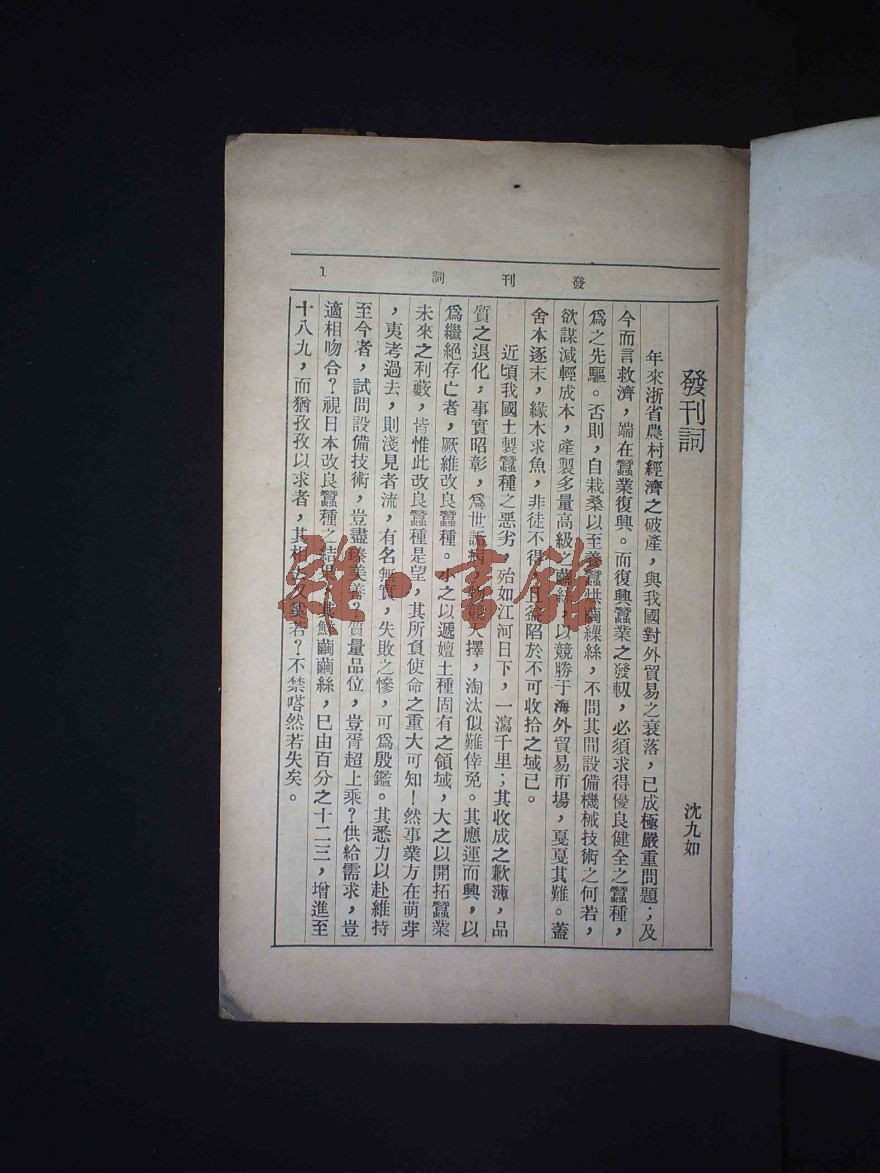 發刊詞
1
發刊詞
沈九如
年來浙省農村經濟之破產，與我國對外貿易之衰落，已成極嚴重問題；及
今而言救濟，端在蠶業復興。而復興蠶業之發軔，必須求得優良健全之蠶種，
爲之先驅。否則，自栽桑以至養蠶烘繭繅絲，不問其間設備機械技術之何若，
欲謀減輕成本，產製多量高級之繭絲，以競勝于海外貿易市場，戛戛其難。蓋
舍本逐末，緣木求魚，非徒不得，且益陷於不可收拾之域已。
近頃我國土製蠶種之惡劣，殆如江河日下，一瀉千里；其收成之歉薄，品
質之退化，事實昭彰，爲世詬病，物競天擇，淘汰似難倖免。其應運而興，以
爲繼絕存亡者，厥維改良蠶種。小之以遞嬗土種固有之領域，大之以開拓蠶業
未來之利藪，皆惟此改良蠶種是望，其所負使命之重大可知！然事業方在萌芽
，夷考過去，則淺見者流，有名無實，失敗之慘，可爲殷鑑。其悉力以赴維持
至今者，試問設備技術，豈盡臻美善？質量品位，豈胥超上乘？供給需求，豈
適相吻合？視日本改良蠶種之結果，其鮮繭繭絲，已由百分之十二三，增進至
十八九，而猶孜孜以求者，其相去又奚若？不禁嗒然若失矣。
雜·書館